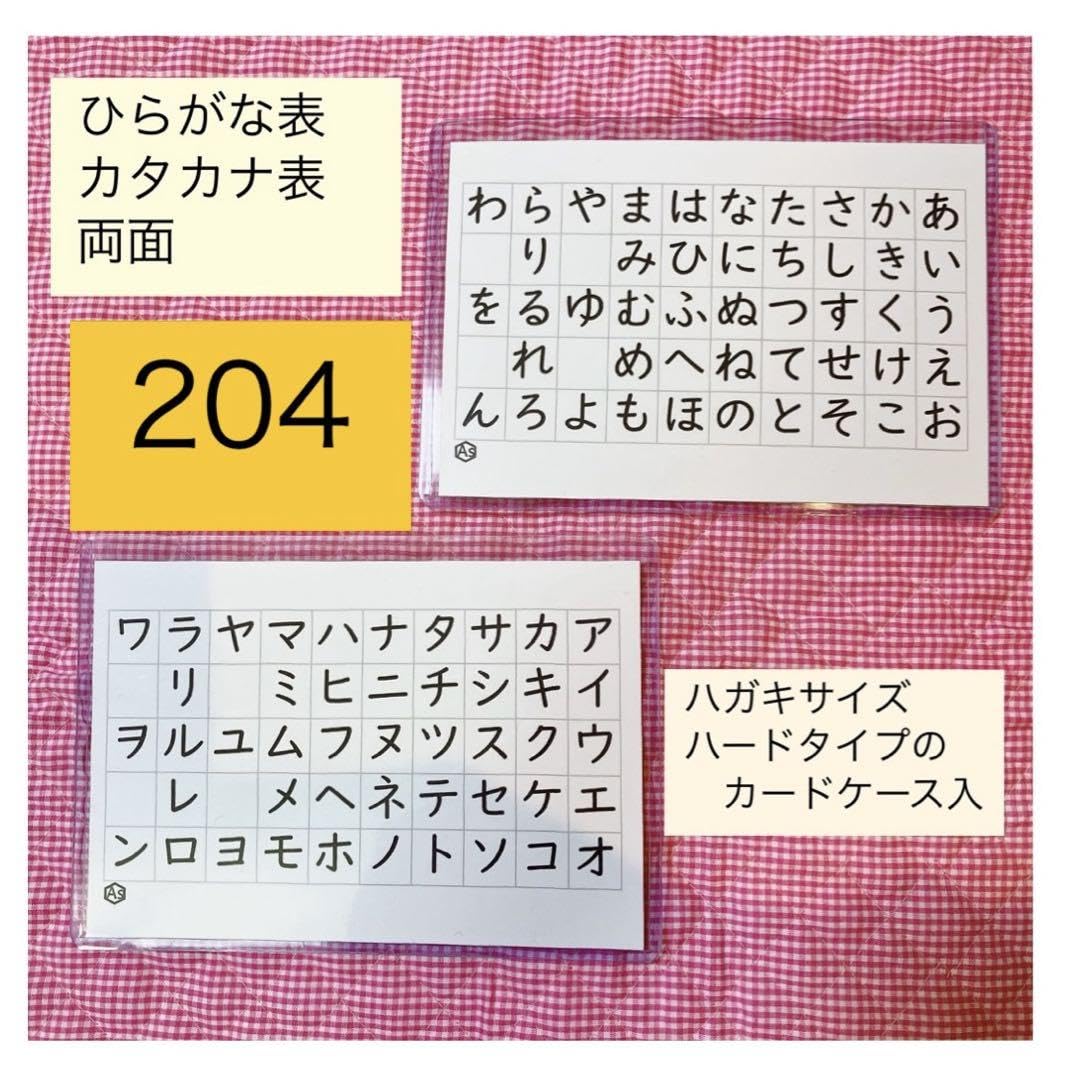 ひらがな表
カタカナ表
両面
204
わらやまはなたさかあ
り みひにちしきい
をるゆむふぬつすくう
れ めへねてせけえ
んろよもほのとそこお
As
ワラヤマハナタサカア
リ ミヒニチシキイ
ヲルユムフヌツスクウ
レ メヘネテセケエ
ンロヨモホノトソコオ
As
ハガキサイズ
ハードタイプの
カードケース入